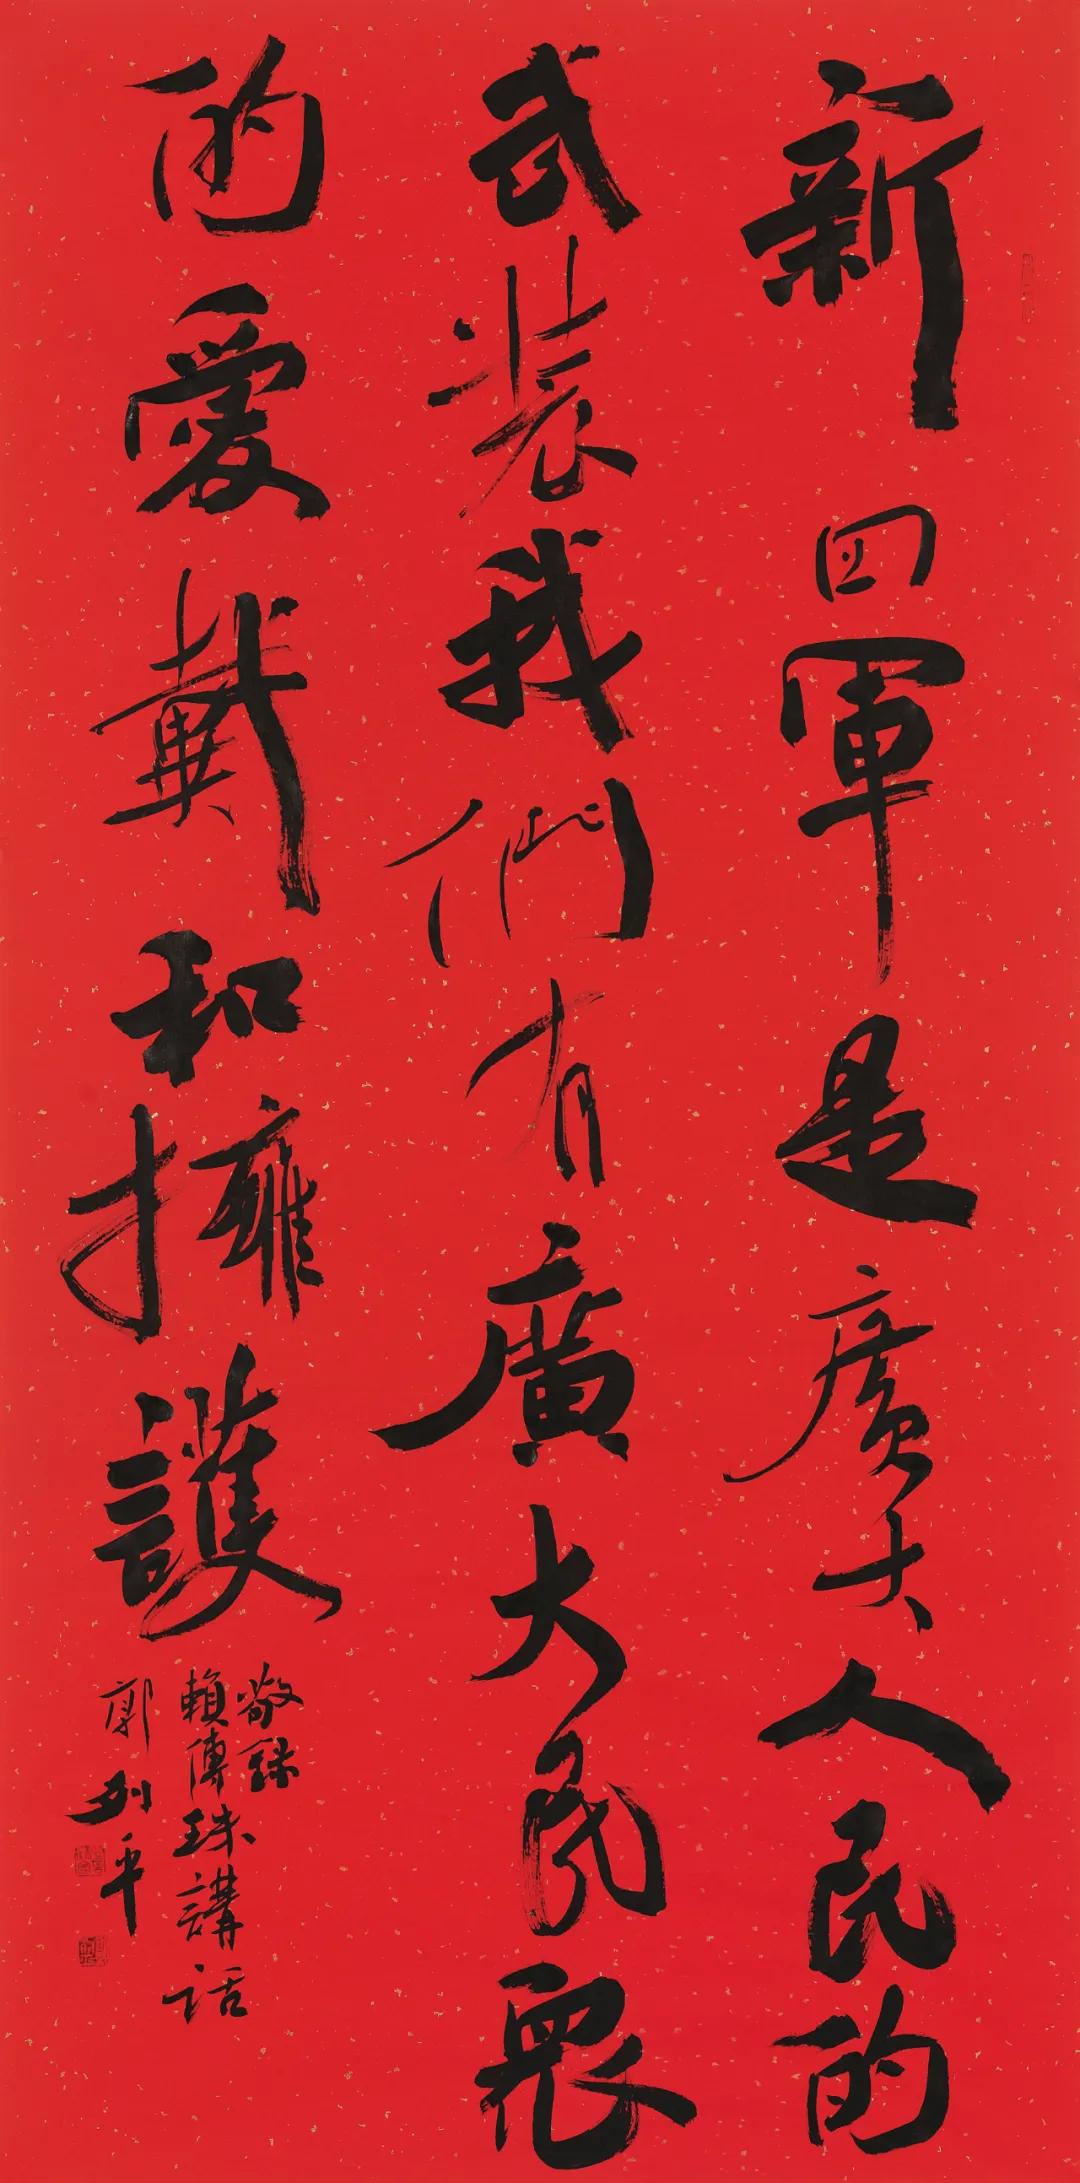 新四軍是廣大人民的
武裝我們有廣大民眾
的愛戴和擁護
敬錄
賴傳珠講話
郭列平